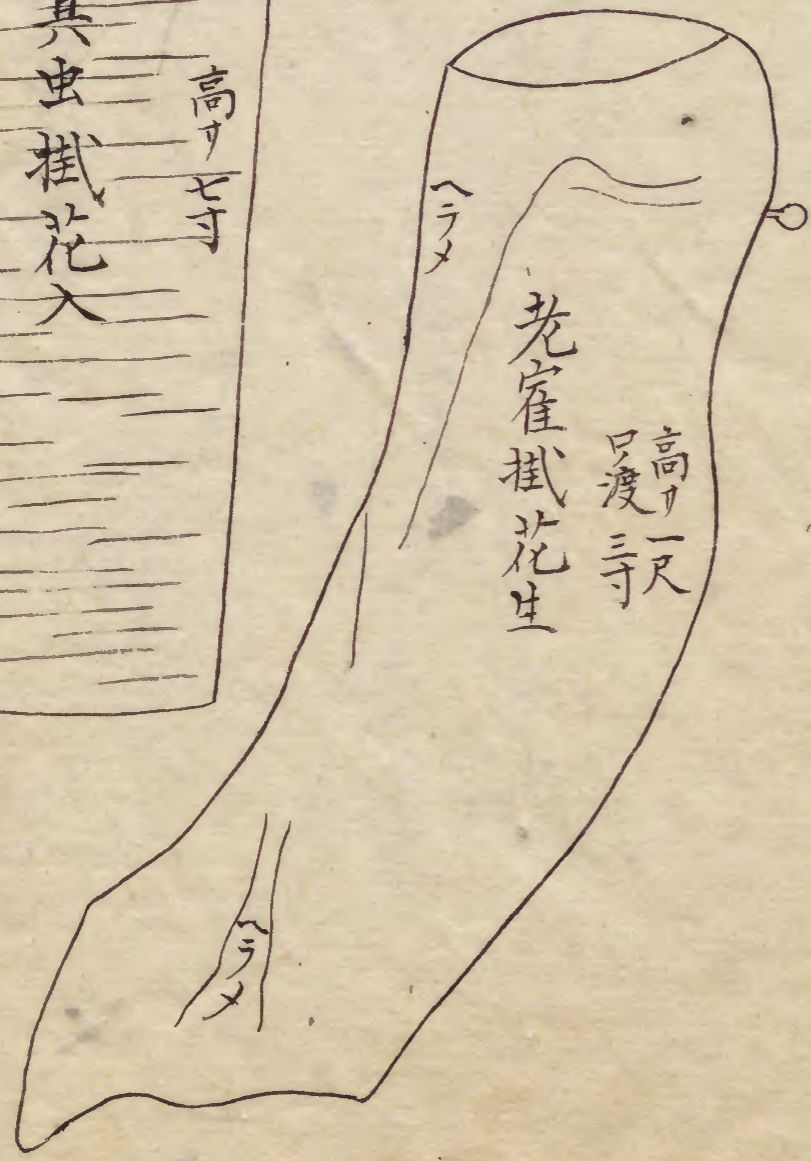 高サ一尺
口渡三寸
老寉掛花生
ヘラメ
ヘラメ
高サ七寸
虫掛花入